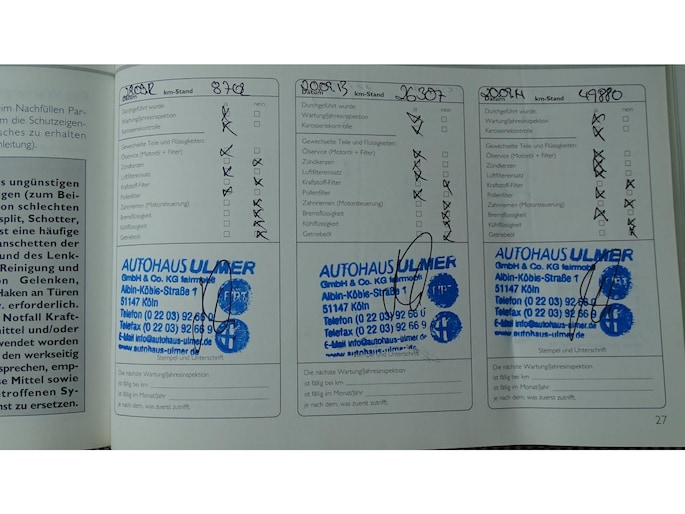 eim Nachfüllen Par-
m die Schutzeigen-
sches zu erhalten
nleitung).
s ungünstigen
gen (zum Bei-
on schlechten
split, Schotter,
st eine häufige
anschetten der
und des Lenk-
Reinigung und
on Gelenken,
Haken an Türen
r. erforderlich.
Notfall Kraft-
mittel und/oder
wendet worden
den werkseitig
sprechen, emp-
se Mittel sowie
troffenen Sy-
nst zu ersetzen.
Datum km-Stand 8702
Durchgeführt wurde: ja nein
Wartung/Jahresinspektion
Karosseriekontrolle
Gewechselte Teile und Flüssigkeiten:
Ölservice (Motoröl + Filter)
Zündkerzen
Luftfiltereinsatz
Kraftstoff-Filter
Pollenfilter
Zahnriemen (Motorsteuerung)
Bremsflüssigkeit
Kühlflüssigkeit
Getriebeöl
AUTOHAUS ULMER
GmbH & Co. KG fairmobil
Albin-Köbis-Straße 1
51147 Köln
Telefon (0 22 03) 92 66 0
Telefax (0 22 03) 92 66 9
E-Mail info@autohaus-ulmer.de
www.autohaus-ulmer.de
Stempel und Unterschrift
Die nächste Wartung/Jahresinspektion
ist fällig bei km
ist fällig im Monat/Jahr
je nach dem, was zuerst zutrifft.
Datum km-Stand 26307
Durchgeführt wurde: ja nein
Wartung/Jahresinspektion
Karosseriekontrolle
Gewechselte Teile und Flüssigkeiten:
Ölservice (Motoröl + Filter)
Zündkerzen
Luftfiltereinsatz
Kraftstoff-Filter
Pollenfilter
Zahnriemen (Motorsteuerung)
Bremsflüssigkeit
Kühlflüssigkeit
Getriebeöl
AUTOHAUS ULMER
GmbH & Co. KG fairmobil
Albin-Köbis-Straße 1
51147 Köln
Telefon (0 22 03) 92 66 0
Telefax (0 22 03) 92 66 9
E-Mail info@autohaus-ulmer.de
www.autohaus-ulmer.de
Stempel und Unterschrift
Die nächste Wartung/Jahresinspektion
ist fällig bei km
ist fällig im Monat/Jahr
je nach dem, was zuerst zutrifft.
Datum km-Stand 49880
Durchgeführt wurde: ja nein
Wartung/Jahresinspektion
Karosseriekontrolle
Gewechselte Teile und Flüssigkeiten:
Ölservice (Motoröl + Filter)
Zündkerzen
Luftfiltereinsatz
Kraftstoff-Filter
Pollenfilter
Zahnriemen (Motorsteuerung)
Bremsflüssigkeit
Kühlflüssigkeit
Getriebeöl
AUTOHAUS ULMER
GmbH & Co. KG fairmobil
Albin-Köbis-Straße 1
51147 Köln
Telefon (0 22 03) 92 66 0
Telefax (0 22 03) 92 66 9
E-Mail info@autohaus-ulmer.de
www.autohaus-ulmer.de
Stempel und Unterschrift
Die nächste Wartung/Jahresinspektion
ist fällig bei km
ist fällig im Monat/Jahr
je nach dem, was zuerst zutrifft.
27